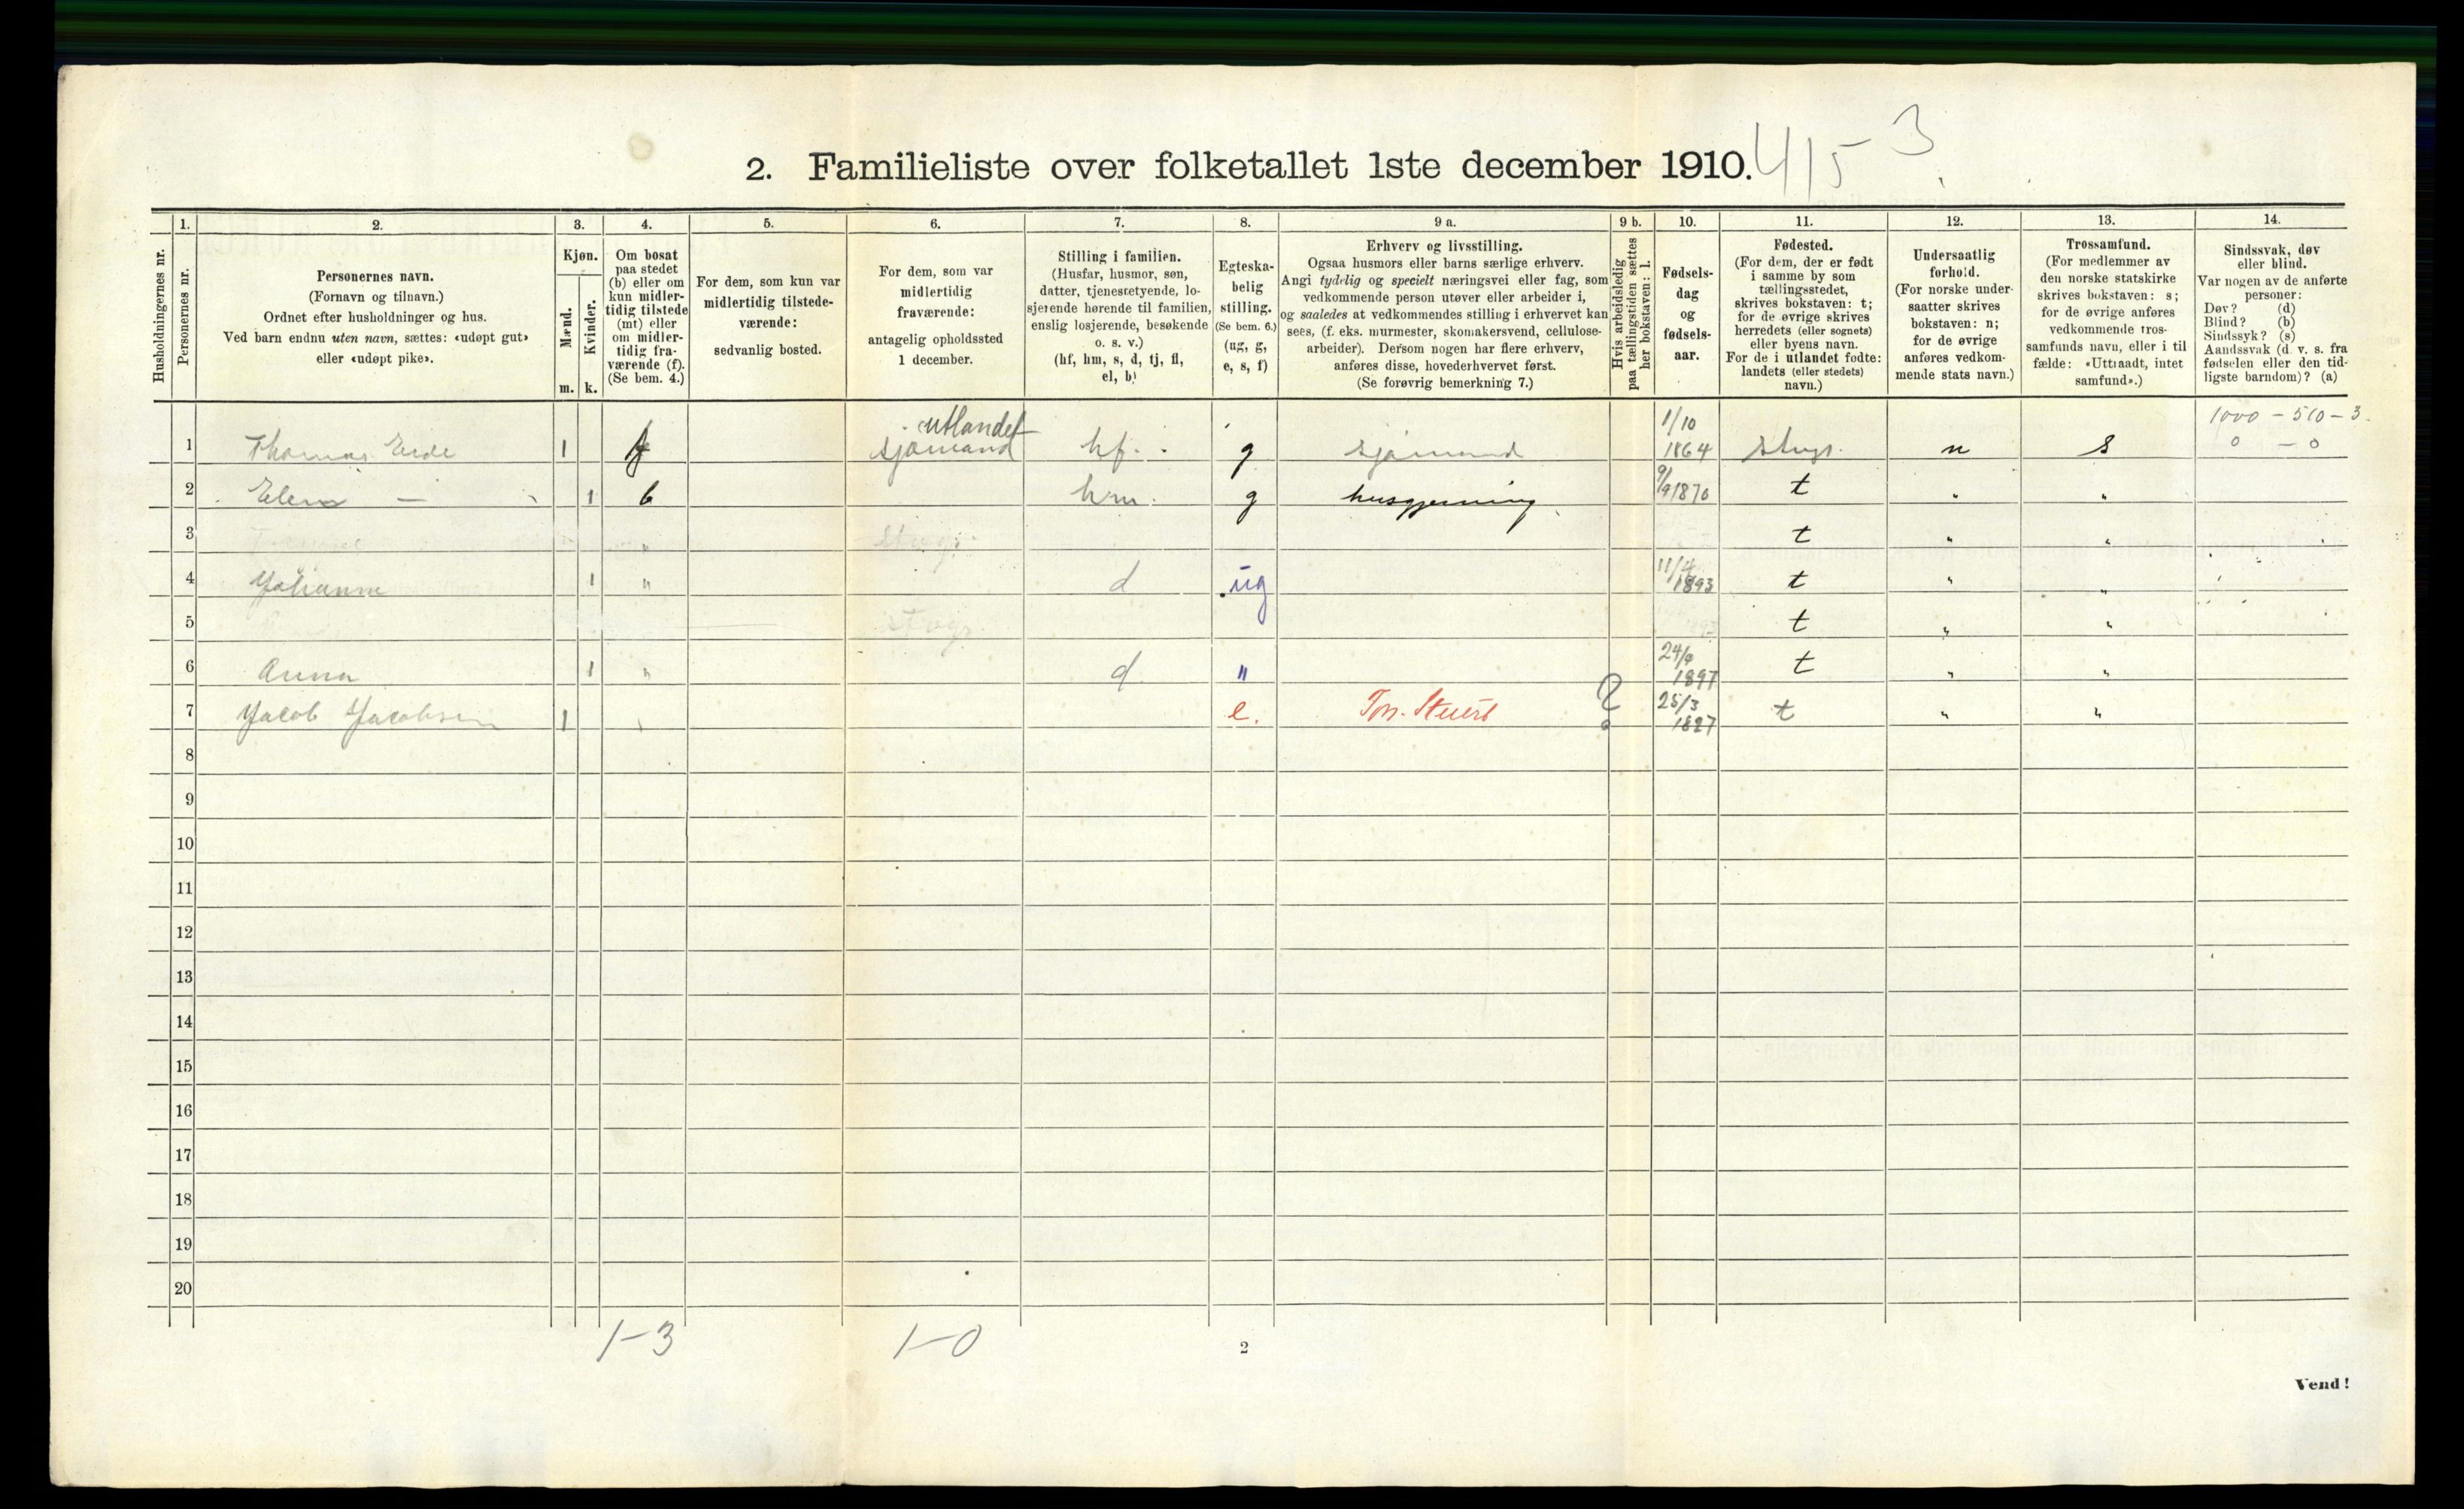 2. Familieliste over folketallet 1ste december 1910.
415 3
Husholdningernes nr.
1.
Personernes nr.
2.
Personernes navn.
(Fornavn og tilnavn.)
Ordnet efter husholdninger og hus.
Ved barn endnu uten navn, sættes: «udøpt gut»
eller «udøpt pike».
3.
Kjøn.
Mænd.
m.
Kvinder.
k.
4.
Om bosat
paa stedet
(b) eller om
kun midler-
tidig tilstede
(mt) eller
om midler-
tidig fra-
værende (f).
(Se bem. 4.)
5.
For dem, som kun var
midlertidig tilstede-
værende:
sedvanlig bosted.
6.
For dem, som var
midlertidig
fraværende:
antagelig opholdssted
1 december.
7.
Stilling i familien.
(Husfar, husmor, søn,
datter, tjenestetyende, lo-
sjerende hørende til familien,
enslig losjerende, besøkende
o. s. v.)
(hf, hm, s, d, tj, fl,
el, b)
8.
Egteska-
belig
stilling.
(Se bem. 6.)
(ug, g,
e, s, f)
9 a.
Erhverv og livsstilling.
Ogsaa husmors eller barns særlige erhverv.
Angi tydelig og specielt næringsvei eller fag, som
vedkommende person utøver eller arbeider i,
og saaledes at vedkommendes stilling i erhvervet kan
sees, (f. eks. murmester, skomakersvend, cellulose-
arbeider). Dersom nogen har flere erhverv,
anføres disse, hovederhvervet først.
(Se forøvrig bemerkning 7.)
9 b.
Hvis arbeidsledig
paa tællingstiden sættes
her bokstaven: l.
10.
Fødsels-
dag
og
fødsels-
aar.
11.
Fødested.
(For dem, der er født
i samme by som
tællingsstedet,
skrives bokstaven: t;
for de øvrige skrives
herredets (eller sognets)
eller byens navn.
For de i utlandet fødte:
landets (eller stedets)
navn.)
12.
Undersaatlig
forhold.
(For norske under-
saatter skrives
bokstaven: n;
for de øvrige
anføres vedkom-
mende stats navn.)
13.
Trossamfund.
(For medlemmer av
den norske statskirke
skrives bokstaven: s;
for de øvrige anføres
vedkommende tros-
samfunds navn, eller i til
fælde: «Uttraadt, intet
samfund».)
14.
Sindssvak, døv
eller blind.
Var nogen av de anførte
personer:
Døv? (d)
Blind? (b)
Sindssyk? (s)
Aandssvak (d. v. s. fra
fødselen eller den tid-
ligste barndom)? (a)
utlandet 1/10 1000 - 510 - 3
1 Thomas 1 f sjømand hf. g sjømand 1864 n s 0 - 0
2 Elen — 1 b hm. g husgjerning 9/9 1870 t " "
3 t " "
4 Johanne 1 " d ug 11/4 1893 t " "
5 t " "
6 Anna 1 " d " 24/9 1897 t " "
7 Jacob Jacobsen 1 " e. ? 25/3 1827 t " "
8
9
10
11
12
13
14
15
16
17
18
19
20
1-3 1-0
2
Vend!